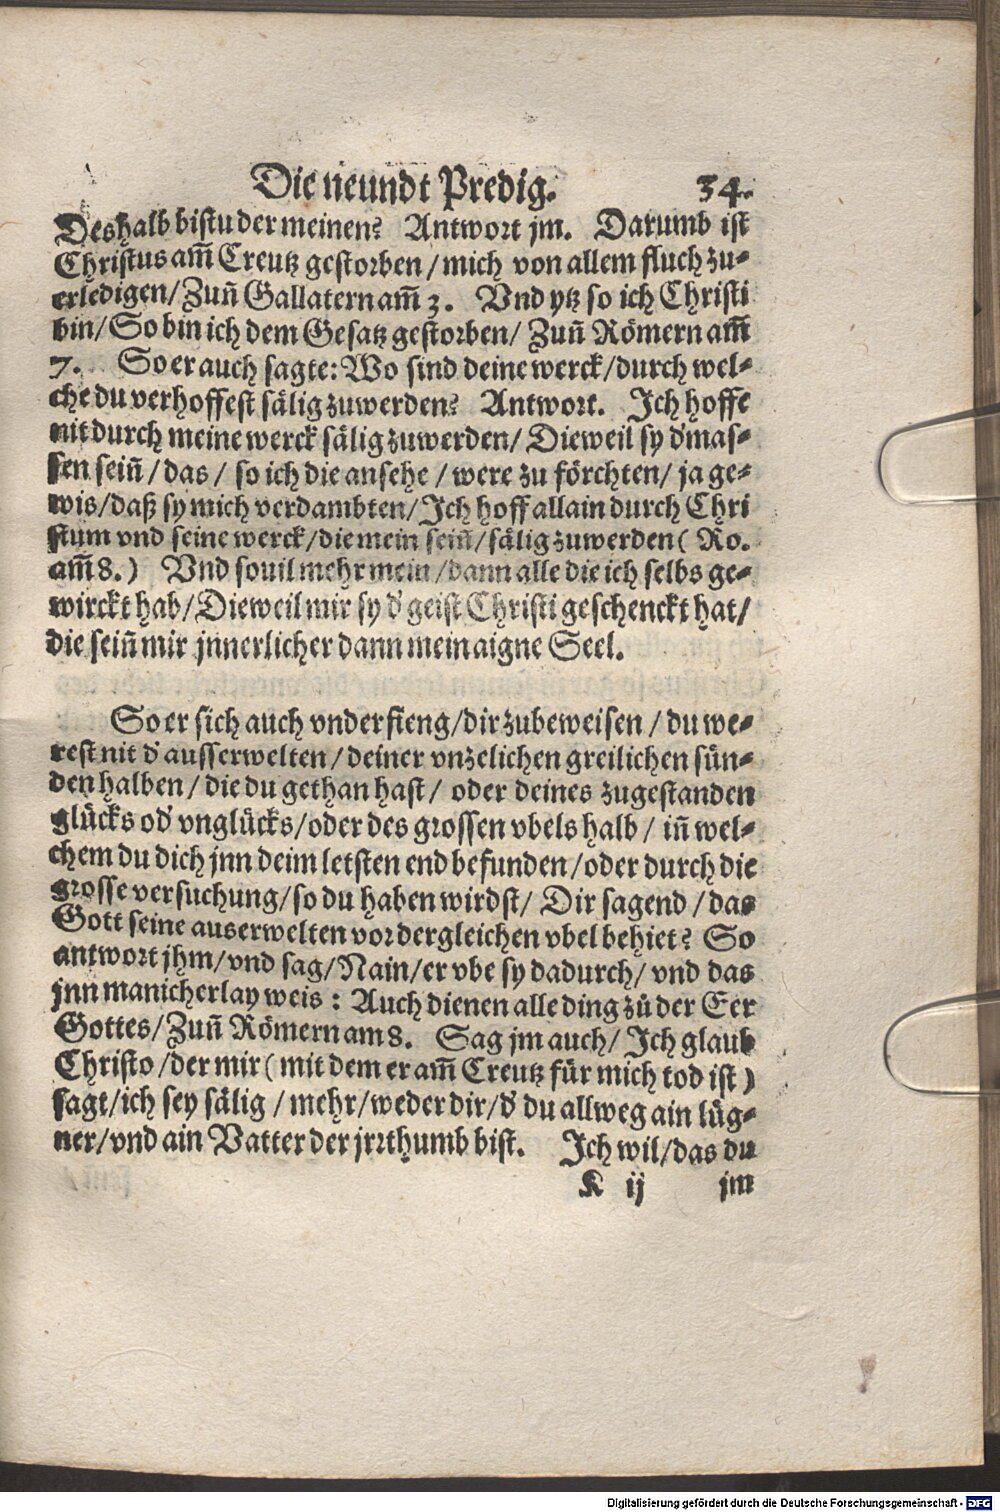 Die neundt Predig. 34.
Deshalb bistu der meinen? Antwort jm. Darumb ist
Christus am̄ Creutz gestorben / mich von allem fluch zu-
erledigen / Zun̄ Gallatern am̄ 3. Vnd ytz so ich Christi
bin / So bin ich dem Gesatz gestorben / Zun̄ Römern am̄
7. So er auch sagte: Wo sind deine werck / durch wel-
che du verhoffest sälig zuwerden? Antwort. Ich hoffe
nit durch meine werck sälig zuwerden / Dieweil sy d' mas-
sen sein̄ / das / so ich die ansehe / were zu förchten / ja ge-
wis / daß sy mich verdambten / Ich hoff allain durch Chri
stum vnd seine werck / die mein sein̄ / sälig zuwerden ( Ro.
am̄ 8. ) Vnd souil mehr mein / dann alle die ich selbs ge-
wirckt hab / Dieweil mir sy d' geist Christi geschenckt hat /
die sein̄ mir jnnerlicher dann mein aigne Seel.
So er sich auch vnderfieng / dir zubeweisen / du we-
rest nit d' ausserwelten / deiner vnzelichen greilichen sün-
den halben / die du gethan hast / oder deines zugestanden
glücks od' vnglücks / oder des grossen vbels halb / in̄ wel-
chem du dich jnn deim letsten end befunden / oder durch die
grosse versuchung / so du haben wirdst / Dir sagend / das
Gott seine auserwelten vor dergleichen vbel behiet? So
antwort jhm / vnd sag / Nain / er vbe sy dadurch / vnd das
jnn manicherlay weis : Auch dienen alle ding zů der Eer
Gottes / Zun̄ Römern am 8. Sag jm auch / Ich glaub
Christo / der mir ( mit dem er am̄ Creutz für mich tod ist )
sagt / ich sey sälig / mehr / weder dir / d' du allweg ain lüg-
ner / vnd ain Vatter der jrrthumb bist. Ich wil / das du
K ij jm
Digitalisierung gefördert durch die Deutsche Forschungsgemeinschaft - DFG